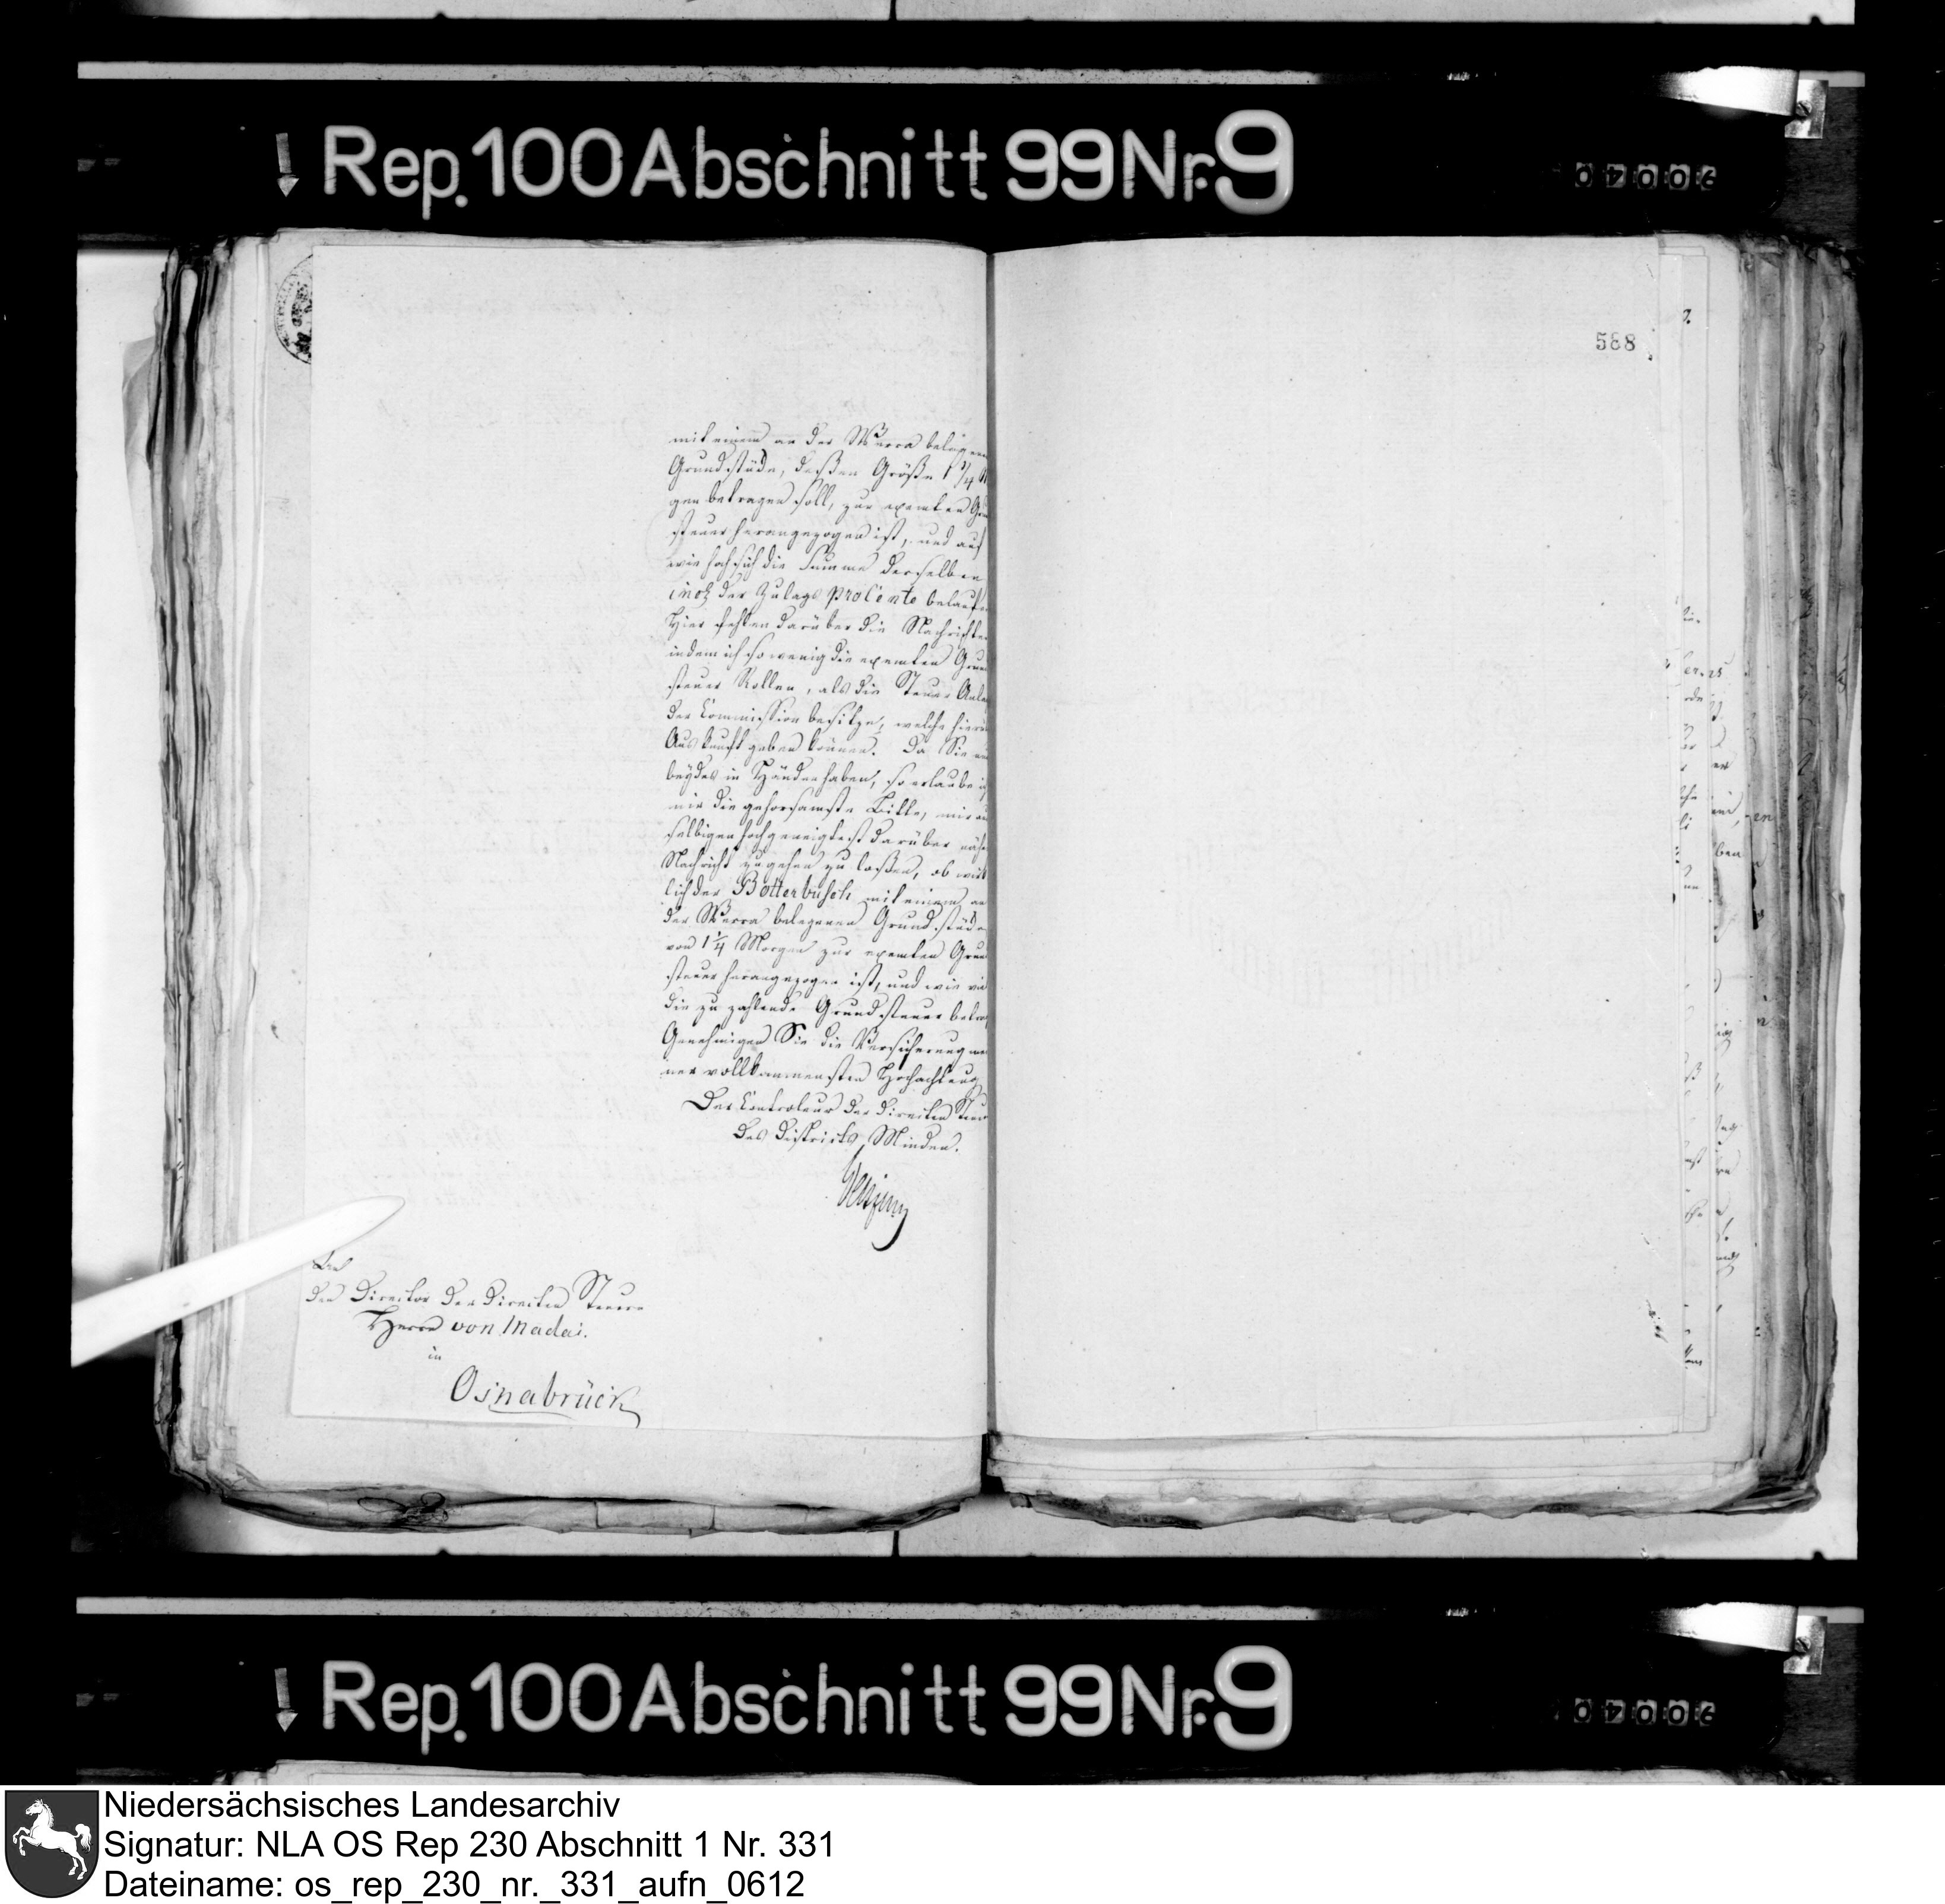 Rep. 100 Abschnitt 99 Nr. 9
588
mit einem an der Werra belegenen
Grundstücke, deßen Größe 1 1/4 M
gen betragen soll, zur exemten Gru
steuer herangezogen ist, und auf
wie hoch sich die Summe derselben
incl. der Zulags procente belaufe
Hier fehlen darüber die Nachrichte
indem ich so wenig die exemten Grun
steuer Rollen, als die Steuer Anla
der Commission besitze, welche hierü
Auskunft geben können. Da Sie
beydes in Händen haben, so erlaube ich
mir die gehorsamste Bitte, mir
selbigen hochgeneigtest darüber nähe
Nachricht zugehen zu laßen, ob wirk
lich der Botterbusch mit einem an
der Werra belegenen Grundstücke
von 1 1/4 Morgen zur exemten Grun
steuer herangezogen ist, und wie viel
die zu zahlende Grundsteuer betra
Genehmigen Sie die Versicherung mei
ner vollkommensten Hochachtung
Der Controleur der directen Steu
des Districts Minden.
An
den Director der directen Steuern
Herrn von Madai.
in
Osnabrück
Rep. 100 Abschnitt 99 Nr. 9
Niedersächsisches Landesarchiv
Signatur: NLA OS Rep 230 Abschnitt 1 Nr. 331
Dateiname: os_rep_230_nr._331_aufn_0612